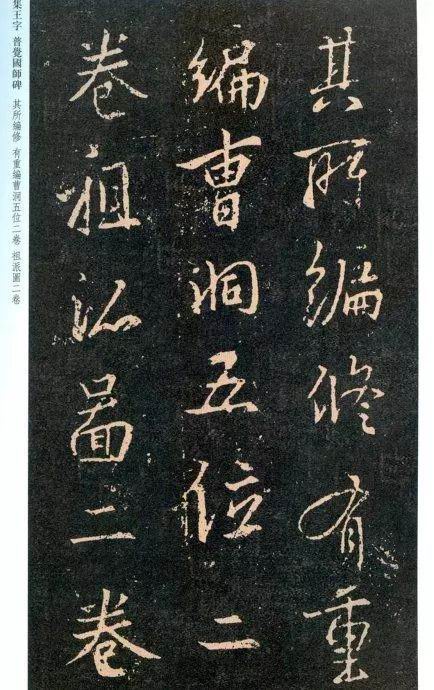 其所編修有重
編曹洞五位二
卷祖派圖二卷
集王字 普覺國師碑 其所編修 有重編曹洞五位二卷 祖派圖二卷